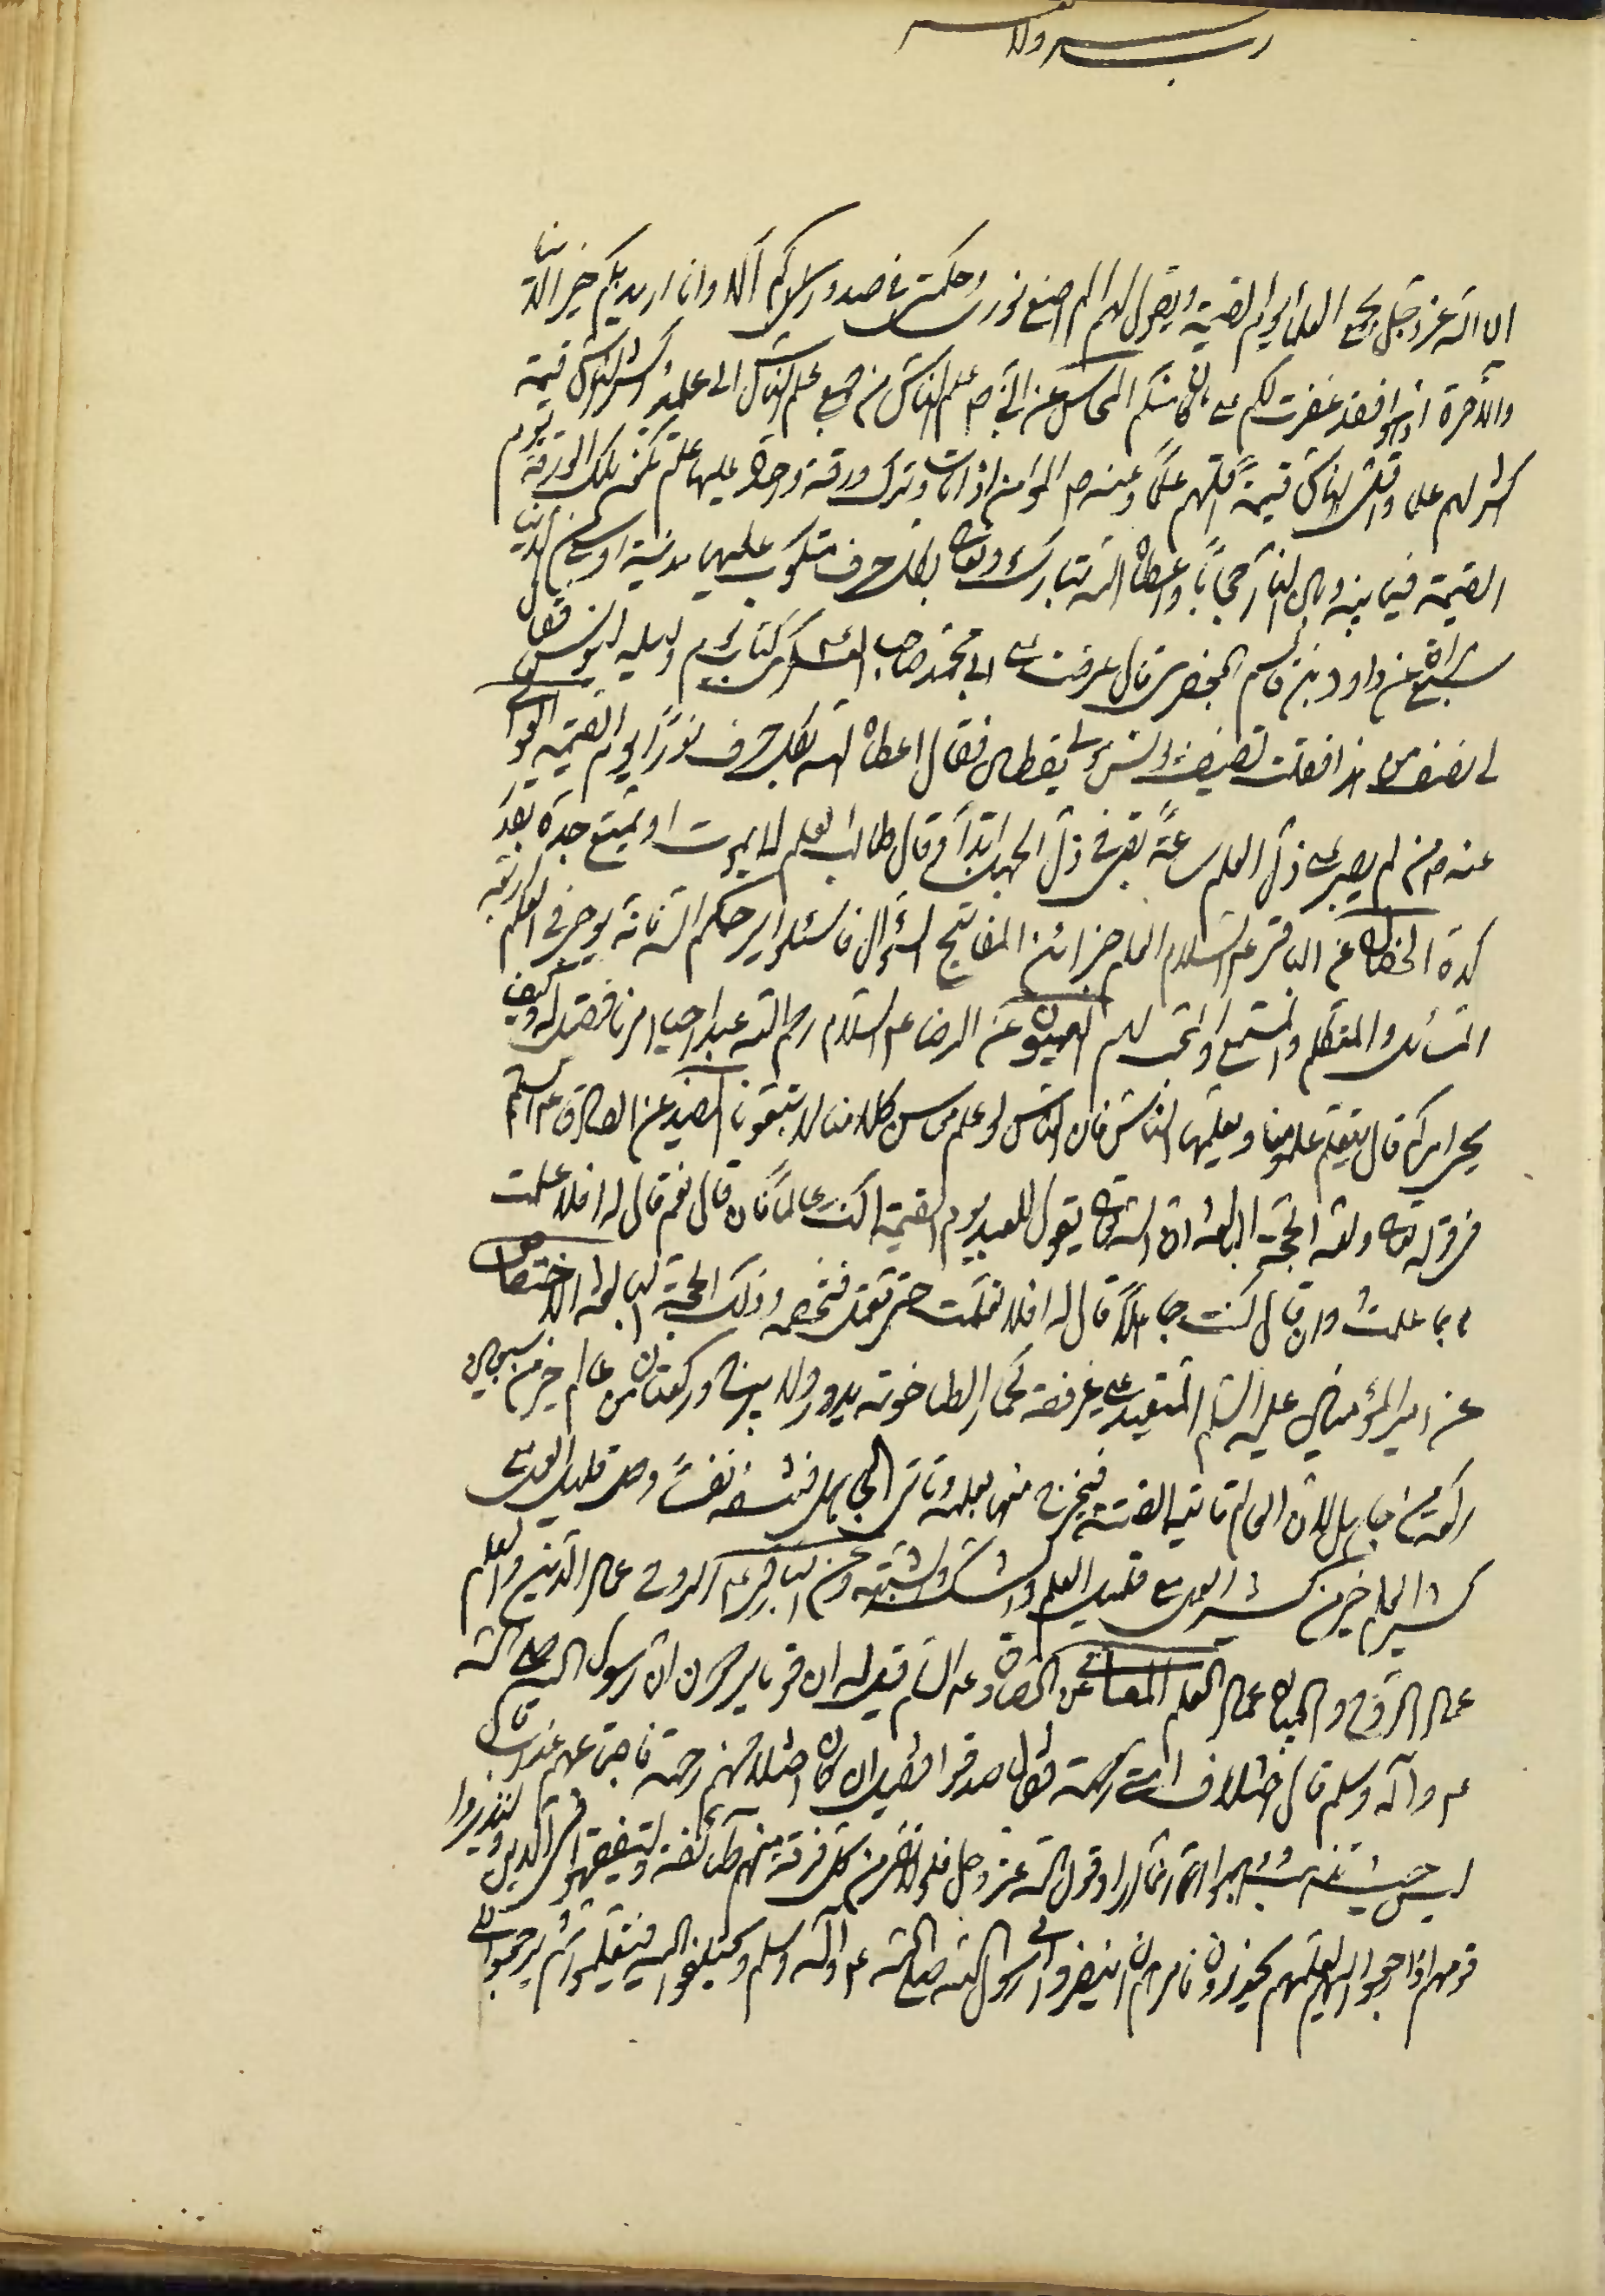 رب يسر ولا تعسر
ان الله عز وجل يجمع العلماء يوم القيمة ويقول لهم لم اضع نوري وحكمتي في صدوركم الا وانا اريد بكم خير الدنيا
والآخرة اذهبوا فقد غفرت لكم على ما كان منكم المحاسن عن النبي ص اعلم الناس من جمع علم الناس الى علمه واكثر الناس قيمة
اكثرهم علما واقل الناس قيمة اقلهم علما وعنه ص المؤمن اذا مات وترك ورقة واحدة عليها علم تكون تلك الورقة يوم
القيمة فيما بينه وبين النار حجابا واعطاه الله تبارك وتعالى بكل حرف مكتوب عليها مدينة اوسع من الدنيا
سبع مرات عن داود بن قاسم الجعفري قال عرضت على ابي محمد صاحب العسكر كتاب يوم وليلة ليونس فقال
لي تصنيف من هذا فقلت تصنيف يونس مولى آل يقطين فقال اعطاه الله بكل حرف نورا يوم القيمة
عنه ص من لم يصبر على ذل العلم ساعة بقي في ذل الجهل ابدا وقال طالب العلم لا يموت او يمتع جده بقدر
كده الخصال عن الباقر عليه السلام العلم خزائن والمفاتيح السؤال فاسئلوا يرحمكم الله فانه يوجر في العلم اربعة
السائل والمتكلم والمستمع والمحب لهم العيون عن الرضا عليه السلام رحم الله عبدا احيا امرنا فقيل له وكيف
يحيي امركم قال يتعلم علومنا ويعلمها الناس فان الناس لو علموا محاسن كلامنا لاتبعونا المفيد عن الصادق عليه السلام
في قوله تعالى ولله الحجة البالغة ان الله تعالى يقول للعبد يوم القيمة اكنت عالما فان قال نعم قال له افلا عملت
بما علمت وان قال كنت جاهلا قال له افلا تعلمت حتى تعمل فتخصمه وذلك الحجة البالغة الاختصاص
عن امير المؤمنين عليه السلم المتعبد على غير فقه كحمار الطاحونة يدور ولا يبرح وركعتان من عالم خير من سبعين
ركعة من جاهل لان العالم تاتيه الفتنة فيخرج منها بعلمه وتاتي الجاهل فتنسفه نسفا وقليل العمل مع
كثير العلم خير من كثير العمل مع قليل العلم والشك والشبهة وعن الباقر ع الروح عماد الدين والعلم
عماد الروح والبيان عماد العلم المعاني عن الصادق عليه السلم قيل له ان قوما يروون ان رسول الله صلى الله
عليه وآله وسلم قال اختلاف امتي رحمة فقال صدقوا فقيل ان كان اختلافهم رحمة فاجتماعهم عذاب قال
ليس حيث تذهب وذهبوا انما اراد قول الله عز وجل فلولا نفر من كل فرقة منهم طائفة ليتفقهوا في الدين ولينذروا
قومهم اذا رجعوا اليهم لعلهم يحذرون فامرهم ان ينفروا الى رسول الله صلى الله عليه وآله وسلم ويختلفوا اليه فيتعلموا ثم يرجعوا الى